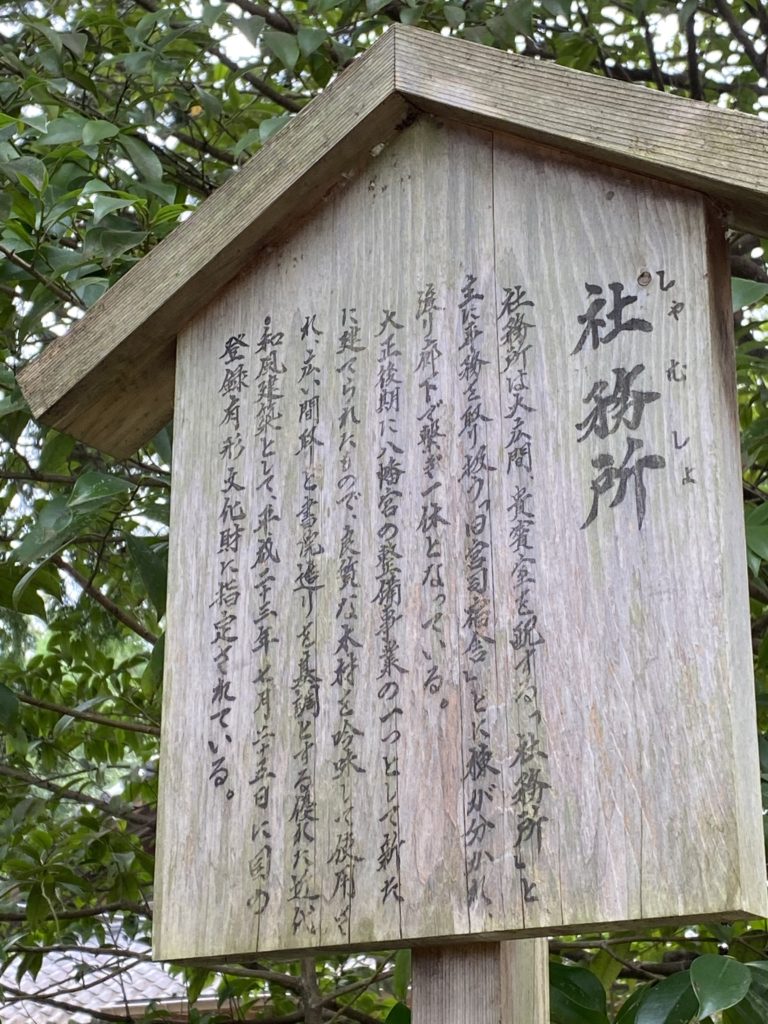 しゃむしょ
社務所
社務所は大広間、貴賓室を配する「社務所」と
主に事務を取り扱う「旧宮司宿舎」とに棟が分かれ、
渡り廊下で繋ぎ一体となっている。
大正後期に八幡宮の整備事業の一つとして新た
に建てられたもので、良質な木材を吟味して使用さ
れ、広い間取りと書院造りを基調とする優れた近代
和風建築として、平成二十三年七月二十五日に国の
登録有形文化財に指定されている。